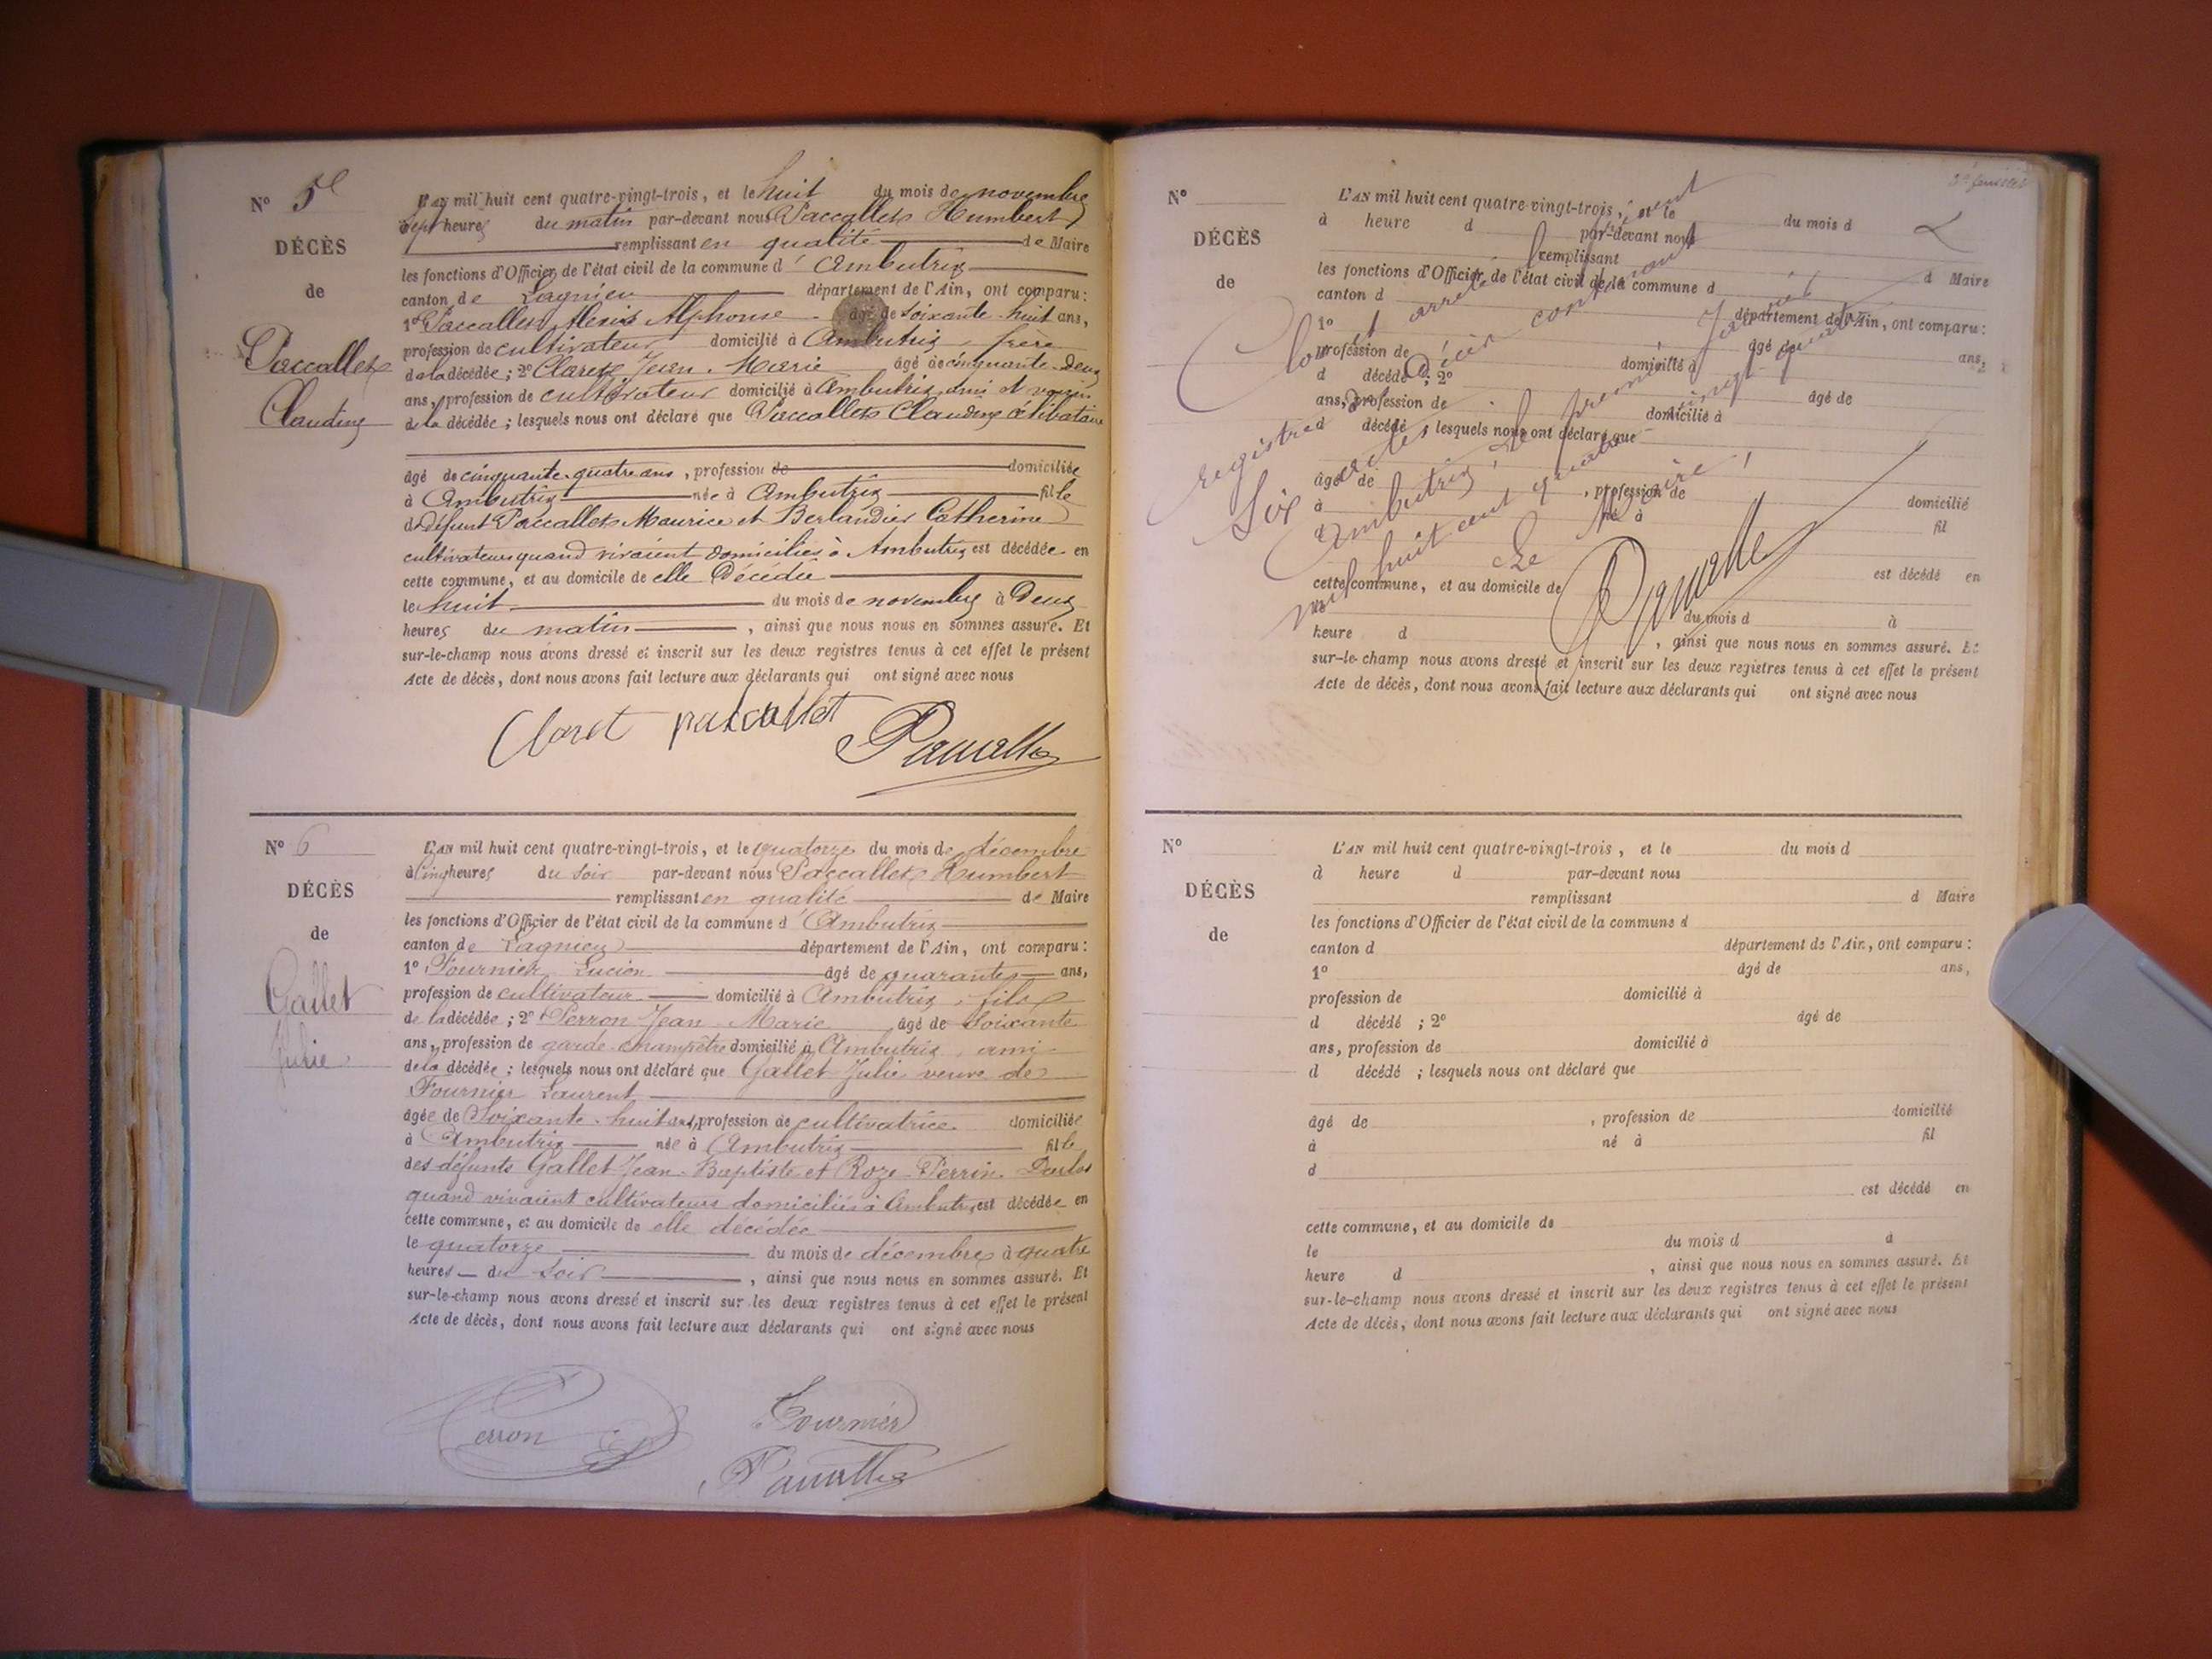 N° 5e
DÉCÈS
de
Paccallet
Claudine
L'AN mil huit cent quatre-vingt-trois, et le huit du mois de novembre
Sept heures du matin par-devant nous Paccallet Humbert
remplissant en qualité de Maire
les fonctions d'Officier de l'état civil de la commune d'Ambutrix
canton de Lagnieu département de l'Ain, ont comparu :
1° Paccallet Alexis Alphonse âgé de soixante-huit ans,
profession de cultivateur domicilié à Ambutrix, frère
de la décédée ; 2° Claret Jean-Marie âgé de cinquante-deux
ans, profession de cultivateur domicilié à Ambutrix, ami et voisin
de la décédée ; lesquels nous ont déclaré que Paccallet Claudine célibataire
âgé de cinquante-quatre ans, profession de domiciliée
à Ambutrix née à Ambutrix fille
de défunt Paccallet Maurice et Berlandier Catherine
cultivateurs quand vivaient domiciliés à Ambutrix est décédée en
cette commune, et au domicile de elle décédée
le huit du mois de novembre à Deux
heures du matin, ainsi que nous nous en sommes assuré. Et
sur-le-champ nous avons dressé et inscrit sur les deux registres tenus à cet effet le présent
Acte de décès, dont nous avons fait lecture aux déclarants qui ont signé avec nous
Claret paccallet Paccallet
N° 6
DÉCÈS
de
Gallet
Julie
L'AN mil huit cent quatre-vingt-trois, et le quatorze du mois de décembre
à cinq heures du soir par-devant nous Paccallet Humbert
remplissant en qualité de Maire
les fonctions d'Officier de l'état civil de la commune d'Ambutrix
canton de Lagnieu département de l'Ain, ont comparu :
1° Fournier Lucien âgé de quarante ans,
profession de cultivateur domicilié à Ambutrix, fils
de la décédée ; 2° Perron Jean-Marie âgé de soixante
ans, profession de garde-champêtre domicilié à Ambutrix, ami
de la décédée ; lesquels nous ont déclaré que Gallet Julie veuve de
Fournier Laurent
âgée de soixante-huit ans, profession de cultivatrice domiciliée
à Ambutrix née à Ambutrix fille
des défunts Gallet Jean-Baptiste et Roze Perrin
quand vivaient cultivateurs domiciliés à Ambutrix est décédée en
cette commune, et au domicile de elle décédée
le quatorze du mois de décembre à quatre
heures du soir, ainsi que nous nous en sommes assuré. Et
sur-le-champ nous avons dressé et inscrit sur les deux registres tenus à cet effet le présent
Acte de décès, dont nous avons fait lecture aux déclarants qui ont signé avec nous
Perron Fournier
Paccallet
3e feuillet
N°
DÉCÈS
de
L'AN mil huit cent quatre-vingt-trois, et le du mois d
à heure d par-devant nous
remplissant d Maire
les fonctions d'Officier de l'état civil de la commune d
canton d département de l'Ain, ont comparu :
1° âgé de ans,
profession de domicilié à
d décédé ; 2° âgé de
ans, profession de domicilié à
d décédé ; lesquels nous ont déclaré que
âgé de , profession de domicilié
à né à fil
d
est décédé en
cette commune, et au domicile de
le du mois d à
heure d , ainsi que nous nous en sommes assuré. Et
sur-le-champ nous avons dressé et inscrit sur les deux registres tenus à cet effet le présent
Acte de décès, dont nous avons fait lecture aux déclarants qui ont signé avec nous
Clos et arrêté le présent
registre de Décès contenant
Six actes
Ambutrix, le premier Janvier
mil huit cent quatre vingt quatre
Le Maire,
Paccallet
N°
DÉCÈS
de
L'AN mil huit cent quatre-vingt-trois, et le du mois d
à heure d par-devant nous
remplissant d Maire
les fonctions d'Officier de l'état civil de la commune d
canton d département de l'Ain, ont comparu :
1° âgé de ans,
profession de domicilié à
d décédé ; 2° âgé de
ans, profession de domicilié à
d décédé ; lesquels nous ont déclaré que
âgé de , profession de domicilié
à né à fil
d
est décédé en
cette commune, et au domicile de
le du mois d à
heure d , ainsi que nous nous en sommes assuré. Et
sur-le-champ nous avons dressé et inscrit sur les deux registres tenus à cet effet le présent
Acte de décès, dont nous avons fait lecture aux déclarants qui ont signé avec nous